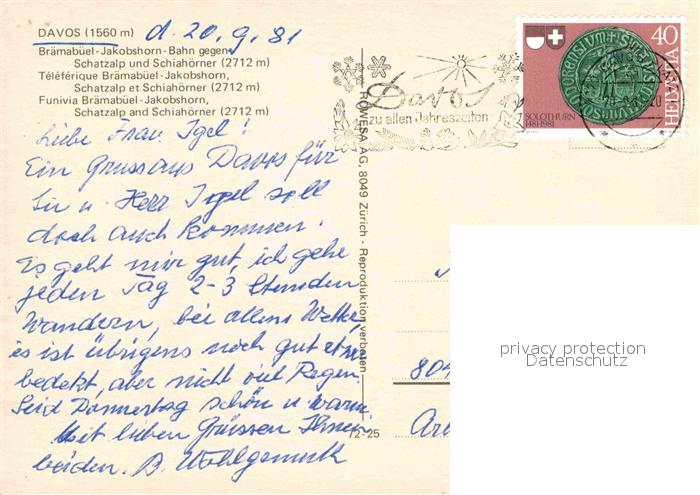 DAVOS (1560 m) d. 20. 9. 81
Brämabüel-Jakobshorn-Bahn gegen
Schatzalp und Schiahörner (2712 m)
Téléférique Brämabüel-Jakobshorn,
Schatzalp et Schiahörner (2712 m)
Funivia Brämabüel-Jakobshorn,
Schatzalp and Schiahörner (2712 m)
Liebe Frau Igel!
Ein Gruss aus Davos für
Sie u. Herr Igel soll
doch auch kommen.
Es geht mir gut, ich gehe
jeden Tag 2-3 Stunden
Wandern, bei allem Wetter,
es ist übrigens noch gut
bedekt, aber nicht viel Regen.
Seid Donnerstag schön u. warm.
Mit lieben Grüssen Ihnen
beiden. B. Wohlgemuth
ROWESA AG, 8049 Zürich - Reproduktion verboten
72-25
Davos
zu allen Jahreszeiten
40
HELVETIA
SOLOTHURN
1481-1981
804
privacy protection
Datenschutz